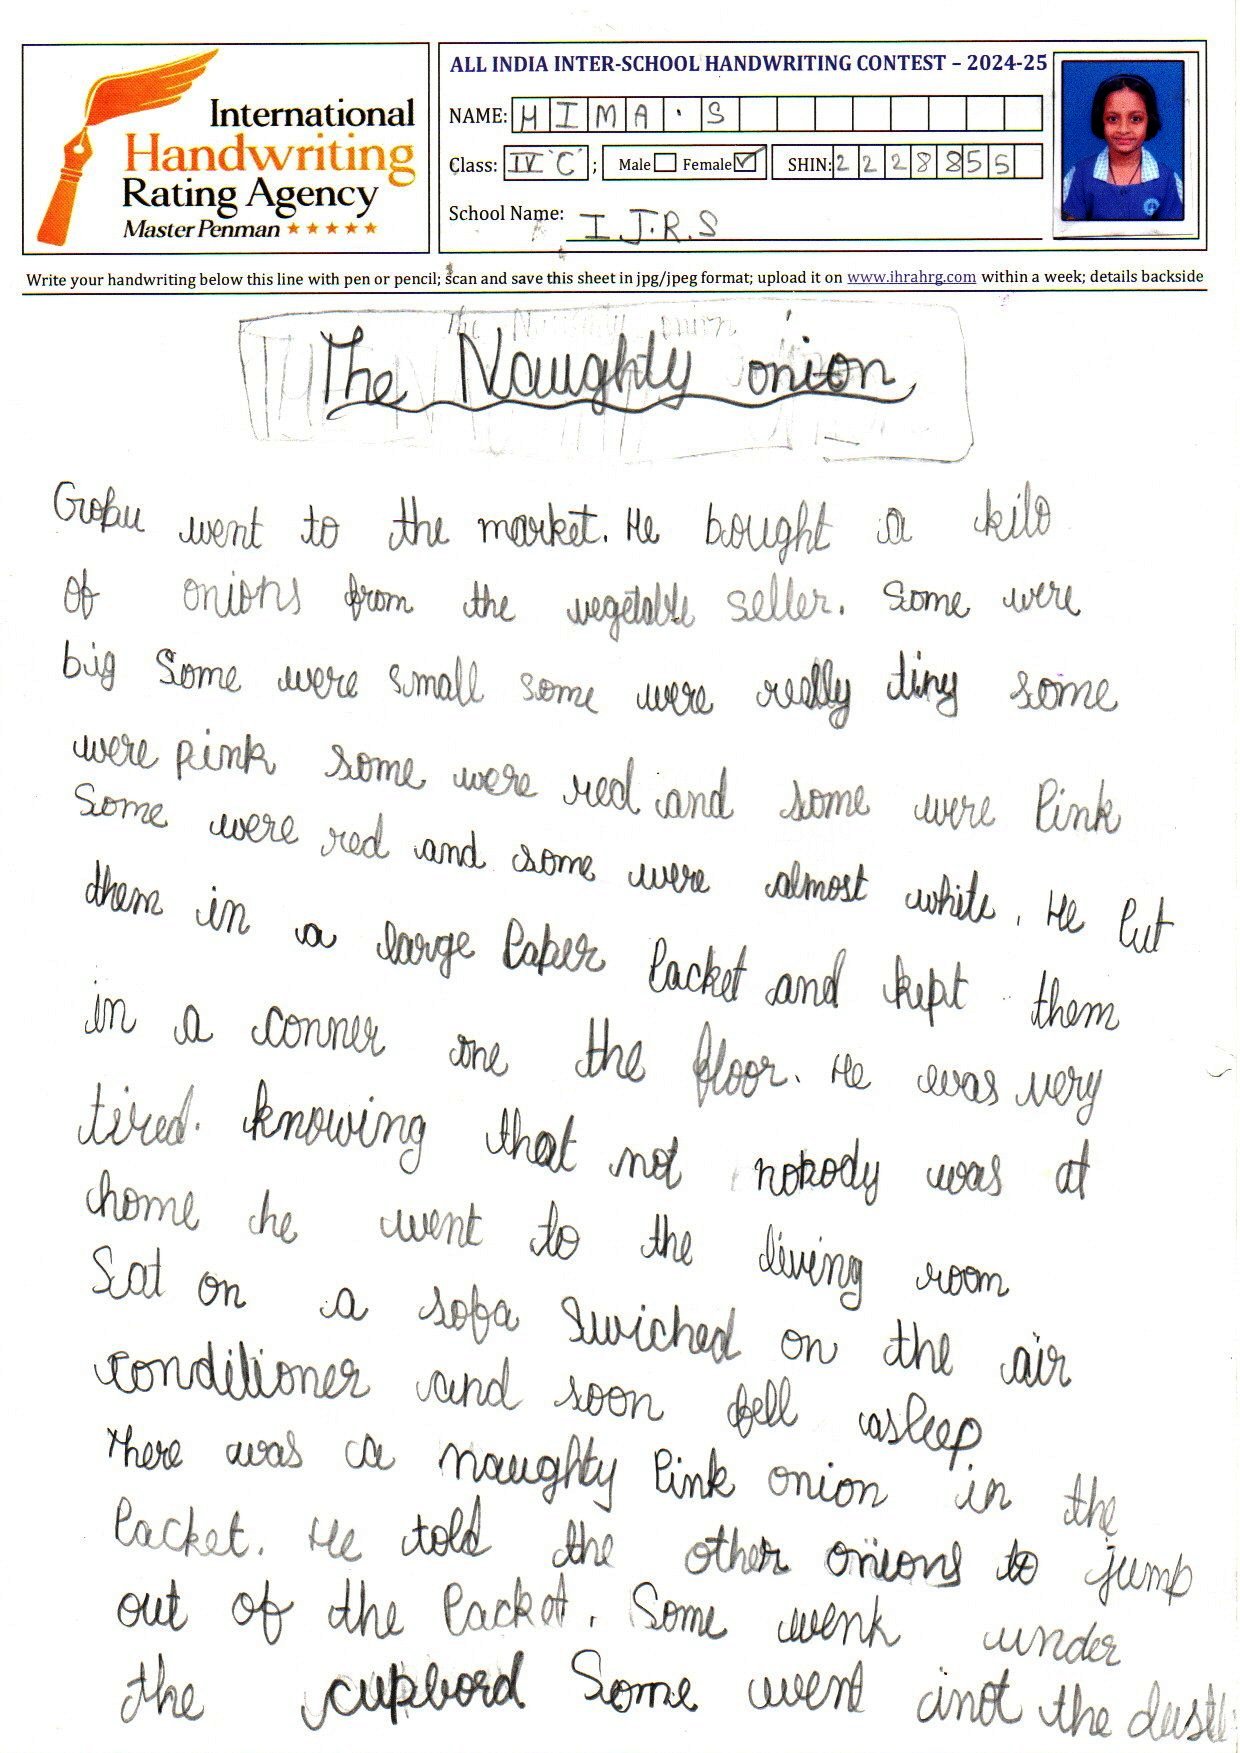 International
Handwriting
Rating Agency
Master Penman
ALL INDIA INTER-SCHOOL HANDWRITING CONTEST – 2024-25
NAME: HIMA.S
Class: IV 'C' ; Male Female ✓ SHIN: 2228855
School Name: I.J.R.S
Write your handwriting below this line with pen or pencil; scan and save this sheet in jpg/jpeg format; upload it on www.ihrahrg.com within a week; details backside
The Naughty onion
Gopu went to the market. He bought a kilo
of onions from the vegetable seller. Some were
big Some were small some were really tiny some
were pink some were red and some were Pink
Some were red and some were almost white. He Put
them in a large Paper Packet and kept them
in a conner one the floor. He was very
tired. knowing that not nobody was at
home he went to the living room
Sat on a sofa Swiched on the air
conditioner and soon fell asleep
There was a naughty Pink onion in the
Packet. He told the other onions to jump
out of the Packet. Some wenk under
the cupbord Some went inot the